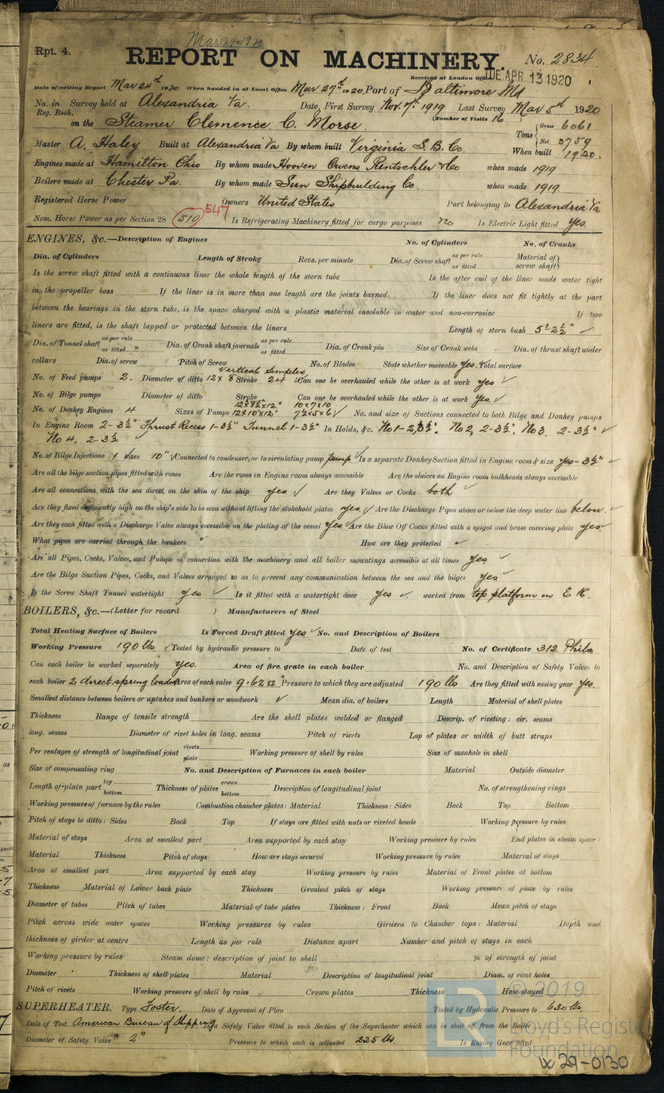 Rpt. 4.
Mar 24 1920
REPORT ON MACHINERY.
No. 2834
Received at London Office
APR 13 1920
Date of writing Report Mar 24th 1920 When handed in at Local Office Mar 27th 1920 Port of Baltimore Md
No. in Survey held at Alexandria Va. Date, First Survey Nov. 7th 1919 Last Survey Mar 5th 1920
Reg. Book.
(Number of Visits 16
on the Steamer Clemence C. Morse
Tons { Gross 6061
Net 3759
Master A. Haley Built at Alexandria Va By whom built Virginia S.B. Co. When built 1920.
Engines made at Hamilton Ohio By whom made Hooven Owens Rentschler & Co when made 1919
Boilers made at Chester Pa. By whom made Sun Shipbuilding Co. when made 1919.
Registered Horse Power Owners United States Port belonging to Alexandria Va
Nom. Horse Power as per Section 28 510 547 Is Refrigerating Machinery fitted for cargo purposes No Is Electric Light fitted Yes.
ENGINES, &c.—Description of Engines No. of Cylinders No. of Cranks
Dia. of Cylinders Length of Stroke Revs. per minute Dia. of Screw shaft as per rule as fitted Material of screw shaft
Is the screw shaft fitted with a continuous liner the whole length of the stern tube Is the after end of the liner made water tight
in the propeller boss If the liner is in more than one length are the joints burned If the liner does not fit tightly at the part
between the bearings in the stern tube, is the space charged with a plastic material insoluble in water and non-corrosive If two
liners are fitted, is the shaft lapped or protected between the liners Length of stern bush 5'2½" ✓
Dia. of Tunnel shaft as per rule as fitted Dia. of Crank shaft journals as per rule as fitted Dia. of Crank pin Size of Crank webs Dia. of thrust shaft under
collars Dia. of screw Pitch of Screw No. of Blades State whether moveable Yes. Total surface
Vertical Simplex
No. of Feed pumps 2. Diameter of ditto 12 x 8 Stroke 24 Can one be overhauled while the other is at work Yes ✓
No. of Bilge pumps Diameter of ditto Stroke Can one be overhauled while the other is at work Yes ✓
No. of Donkey Engines 4 Sizes of Pumps 12x10x12" 7½x5x6 ✓ No. and size of Suctions connected to both Bilge and Donkey pumps
In Engine Room 2-3½" Thrust Recess 1-3½" Tunnel 1-3½" In Holds, &c. No 1-2, 3½". No 2, 2-3½". No 3. 2-3½" ✓
No 4, 2-3½ ✓
No. of Bilge Injections 1 sizes 10" ✓ Connected to condenser, or to circulating pump pump Is a separate Donkey Suction fitted in Engine room & size yes-3½" ✓
Are all the bilge suction pipes fitted with roses Are the roses in Engine room always accessible Are the sluices on Engine room bulkheads always accessible
Are all connections with the sea direct on the skin of the ship yes ✓ Are they Valves or Cocks both ✓
Are they fixed sufficiently high on the ship's side to be seen without lifting the stokehold plates yes. ✓ Are the Discharge Pipes above or below the deep water line below. ✓
Are they each fitted with a Discharge Valve always accessible on the plating of the vessel yes ✓ Are the Blow Off Cocks fitted with a spigot and brass covering plate yes
What pipes are carried through the bunkers ✓ How are they protected ✓
Are all Pipes, Cocks, Valves, and Pumps in connection with the machinery and all boiler mountings accessible at all times Yes ✓
Are the Bilge Suction Pipes, Cocks, and Valves arranged so as to prevent any communication between the sea and the bilges yes ✓
Is the Screw Shaft Tunnel watertight yes ✓ Is it fitted with a watertight door yes ✓ worked from top platform in E R.
BOILERS, &c.—(Letter for record ) Manufacturers of Steel
Total Heating Surface of Boilers Is Forced Draft fitted yes ✓ No. and Description of Boilers
Working Pressure 190 lbs ✓ Tested by hydraulic pressure to Date of test No. of Certificate 312 Phila
Can each boiler be worked separately yes. Area of fire grate in each boiler No. and Description of Safety Valves to
each boiler 2 direct spring loaded Area of each valve 9.62 □" Pressure to which they are adjusted 190 lbs Are they fitted with easing gear yes.
Smallest distance between boilers or uptakes and bunkers or woodwork ✓ Mean dia. of boilers Length Material of shell plates
Thickness Range of tensile strength Are the shell plates welded or flanged Descrip. of riveting: cir. seams
long. seams Diameter of rivet holes in long. seams Pitch of rivets Lap of plates or width of butt straps
Per centages of strength of longitudinal joint rivets plate Working pressure of shell by rules Size of manhole in shell
Size of compensating ring No. and Description of Furnaces in each boiler Material Outside diameter
Length of plain part top bottom Thickness of plates crown bottom Description of longitudinal joint No. of strengthening rings
Working pressure of furnace by the rules Combustion chamber plates: Material Thickness: Sides Back Top Bottom
Pitch of stays to ditto: Sides Back Top If stays are fitted with nuts or riveted heads Working pressure by rules
Material of stays Area at smallest part Area supported by each stay Working pressure by rules End plates in steam space:
Material Thickness Pitch of stays How are stays secured Working pressure by rules Material of stays
Area at smallest part Area supported by each stay Working pressure by rules Material of Front plates at bottom
Thickness Material of Lower back plate Thickness Greatest pitch of stays Working pressure of plate by rules
Diameter of tubes Pitch of tubes Material of tube plates Thickness: Front Back Mean pitch of stays
Pitch across wide water spaces Working pressures by rules Girders to Chamber tops: Material Depth and
thickness of girder at centre Length as per rule Distance apart Number and pitch of stays in each
Working pressure by rules Steam dome: description of joint to shell % of strength of joint
Diameter Thickness of shell plates Material Description of longitudinal joint Diam. of rivet holes
Pitch of rivets Working pressure of shell by rules Crown plates Thickness How stayed
SUPERHEATER. Type Foster. Date of Approval of Plan Tested by Hydraulic Pressure to 630 lbs.
Date of Test American Bureau of Shipping Is a Safety Valve fitted to each Section of the Superheater which can be shut off from the Boiler
Diameter of Safety Valve 2" Pressure to which each is adjusted 225 lbs. Is Easing Gear fitted
© 2019
Lloyd's Register
Foundation
LR
W 29-0130